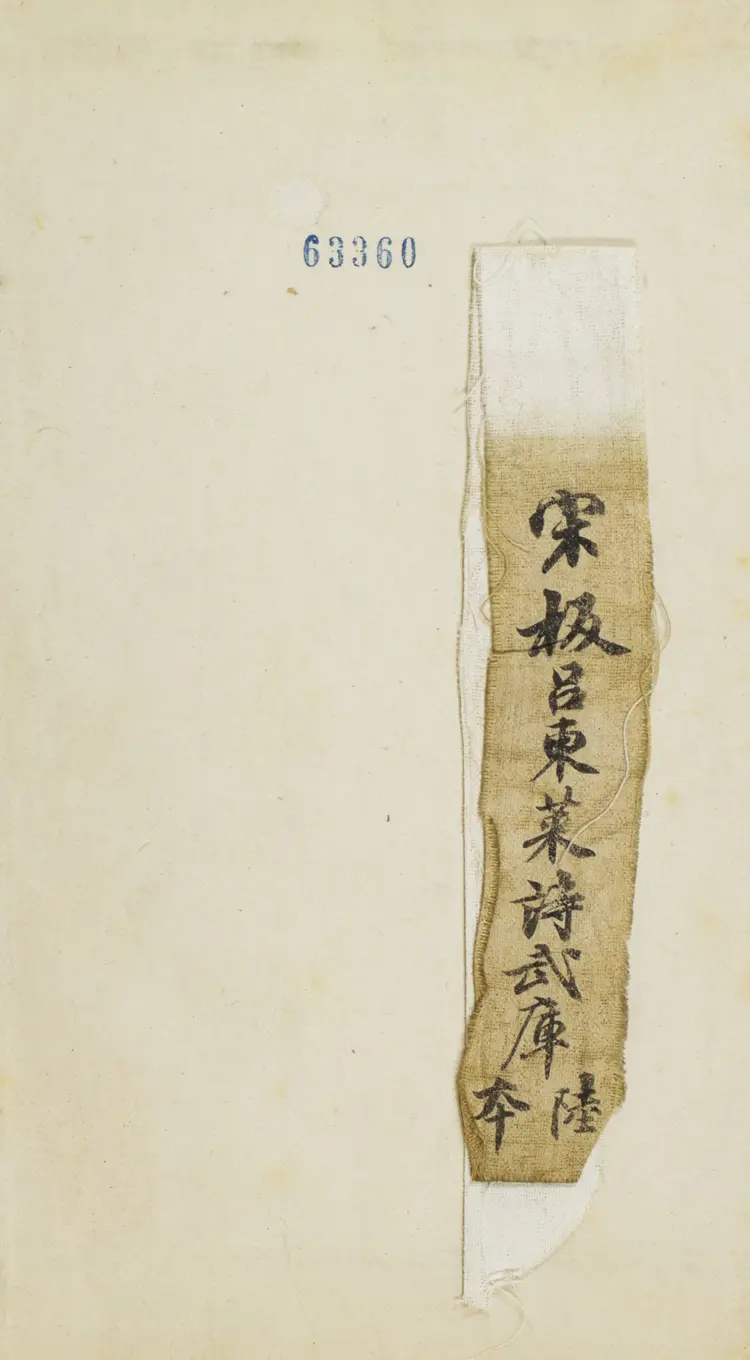 63360
宋板呂東萊詩武庫
陸本